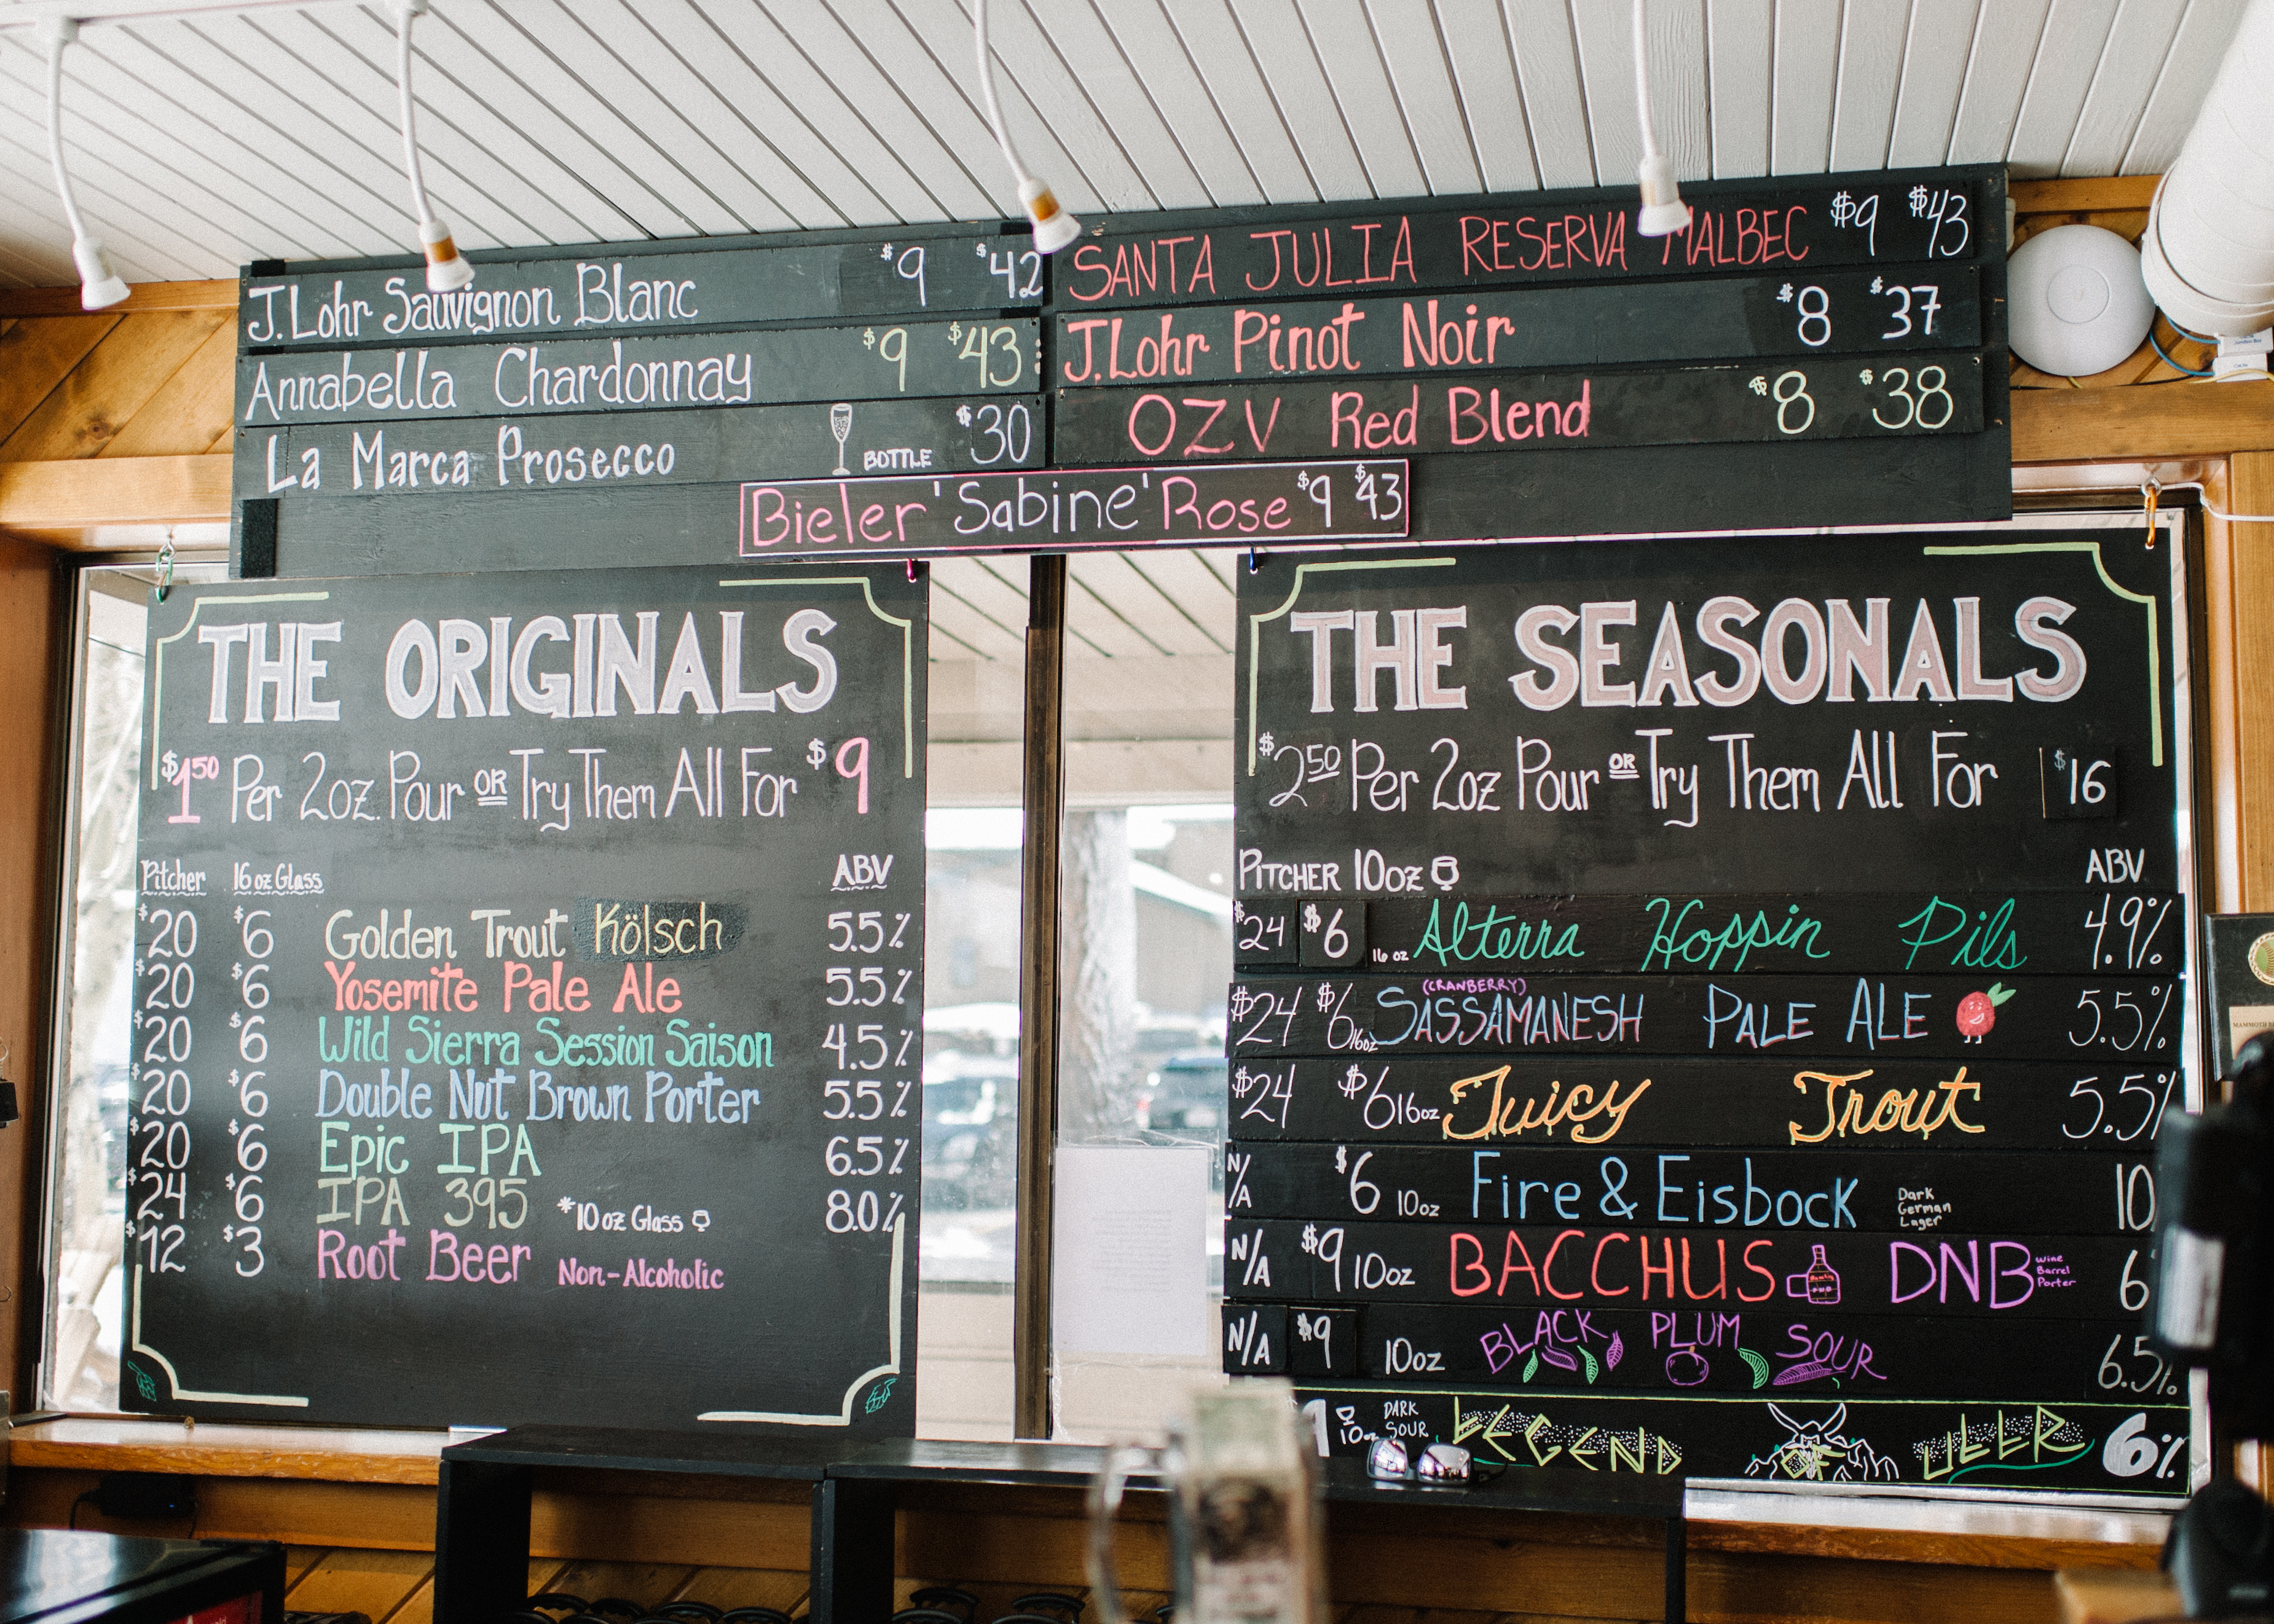 J.Lohr Sauvignon Blanc $9 $42
Annabella Chardonnay $9 $43
La Marca Prosecco BOTTLE $30
SANTA JULIA RESERVA MALBEC $9 $43
J.Lohr Pinot Noir $8 $37
OZV Red Blend $8 $38
Bieler 'Sabine' Rose $9 $43
THE ORIGINALS
$1.50 Per 2oz. Pour OR Try Them All For $9
Pitcher 16 oz Glass ABV
$20 $6 Golden Trout Kölsch 5.5%
$20 $6 Yosemite Pale Ale 5.5%
$20 $6 Wild Sierra Session Saison 4.5%
$20 $6 Double Nut Brown Porter 5.5%
$20 $6 Epic IPA 6.5%
$24 $6 IPA 395 *10 oz Glass 8.0%
$12 $3 Root Beer Non-Alcoholic
THE SEASONALS
$2.50 Per 2oz Pour OR Try Them All For $16
PITCHER 10oz ABV
$24 $6 16 oz Alterra Hoppin Pils 4.9%
(CRANBERRY)
$24 $6 16oz SASSAMANESH PALE ALE 5.5%
$24 $6 16oz Juicy Trout 5.5%
N/A $6 10oz Fire & Eisbock Dark German Lager 10
N/A $9 10oz BACCHUS DNB Wine Barrel Porter 6
N/A $9 10oz BLACK PLUM SOUR 6.5%
10oz DARK SOUR LEGEND OF ULLR 6%